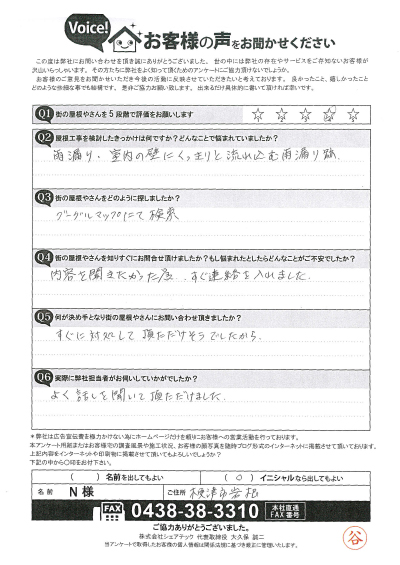 Voice!
お客様の声をお聞かせください
この度は弊社にお問い合わせを頂き誠にありがとうございました。世の中には弊社の存在やサービスをご存知ないお客様が
沢山いらっしゃいます。その方たちに弊社をよく知って頂くためのアンケートにご協力頂けないでしょうか。
お客様のご意見をお聞かせいただき今後の活動に反映させていただきたいと考えております。良かったこと、嬉しかったこと
どのような些細な事でも結構です。是非ご協力お願い致します。出来るだけ具体的に書いて頂ければ幸いです。
Q1 街の屋根やさんを5段階で評価をお願いします ☆ ☆ ☆ ☆ ☆
Q2 屋根工事を検討したきっかけは何ですか?どんなことで悩まれていましたか?
雨漏り・室内の壁にくっきりと流れ込む雨漏り跡.
Q3 街の屋根やさんをどのように探しましたか?
グーグルマップにて検索
Q4 街の屋根やさんを知りすぐにお問合せ頂けましたか?もし悩まれたとしたらどんなことがご不安でしたか?
内容を聞きたかった為、すぐ連絡を入れました.
Q5 何が決め手となり街の屋根やさんにお問い合わせ頂きましたか?
すぐに対処して頂ただけそうでしたから.
Q6 実際に弊社担当者がお伺いしていかがでしたか?
よく話しを聞いて頂ただけました.
*弊社は広告宣伝費を極力かけない為にホームページだけを頼りにお客様への営業活動を行っております。
本アンケート用紙またはお客様宅の調査風景や施工状況、お客様の顔写真を随時ブログ形式のインターネットに掲載させて頂いております。
上記内容をインターネットや印刷物に掲載させて頂いてもよろしいでしょうか?
下記の中から〇印をお付下さい。
( ) 名前を出してもよい ( ○ ) イニシャルなら出してもよい
名前 N 様 ご住所 木更津市岩根
FAX 0438-38-3310 本社直通 FAX番号
ご協力ありがとうございました。
株式会社シェアテック 代表取締役 大久保 誠二
当アンケートで取得したお客様の個人情報は関係法規に基づき厳正に管理いたします。
谷